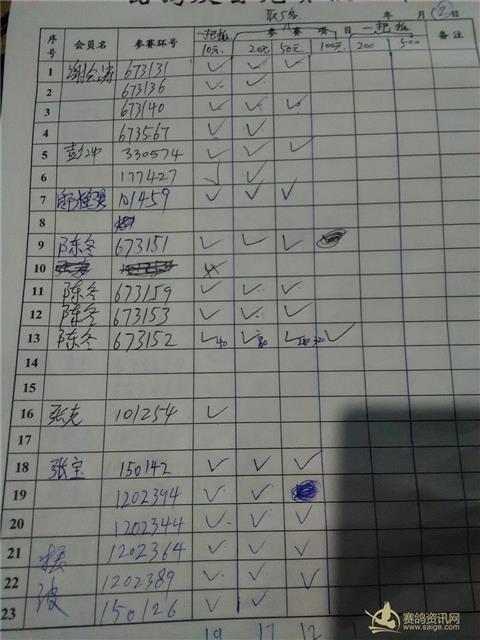 取5名
年 月 日
序号 会员名 参赛环号 一把抓 参赛项目 一把抓 备注
10元 20元 50元 100元 200 500
1 673131 ✓ ✓ ✓
2 673136 ✓ ✓
3 673140 ✓ ✓ ✓
4 673567 ✓ ✓
5 彭冲 330574 ✓ ✓ ✓
6 177427 ✓ ✓
7 101459 ✓ ✓ ✓
8
9 陈冬 673151 ✓ ✓ ✓
10
11 陈冬 673159 ✓ ✓ ✓
12 陈冬 673153 ✓ ✓ ✓
13 陈冬 673152 ✓40 ✓80 ✓ ✓
14
15
16 张克 101254 ✓
17
18 张宝 150142 ✓ ✓ ✓
19 1202394 ✓ ✓
20 1202344 ✓ ✓ ✓
21 1202364 ✓ ✓ ✓
22 波 1202389 ✓ ✓ ✓
23 150126 ✓ ✓
19 17 12
赛鸽资讯网
www.saige.com